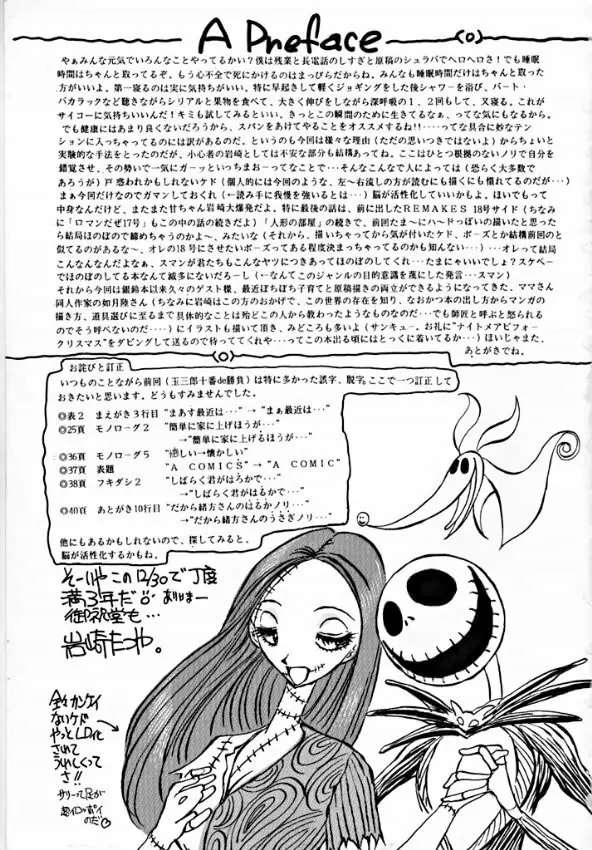 A Preface
やぁみんな元気でいろんなことやってるかい？僕は残業と長電話のしすぎと原稿のシュラバでヘロヘロさ！でも睡眠
時間はちゃんと取ってるぞ。もう心不全で死にかけるのはまっぴらだからね。みんなも睡眠時間だけはちゃんと取った
方がいいよ。第一寝るのは実に気持ちがいい。特に早起きして軽くジョギングをした後シャワーを浴び、バート・
バカラックなど聴きながらシリアルと果物を食べて、大きく伸びをしながら深呼吸の１、２回もして、又寝る。これが
サイコーに気持ちいいんだ！キミも試してみるといい。きっとこの瞬間のために生きてるなぁ、って気になるから。
でも健康にはあまり良くないだろうから、スパンをあけてやることをオススメするね!!‥‥って具合に妙なテン
ションに入っちゃってるのには訳があるのだ。というのも今回は様々な理由（ただの思いつきではないよ）からちょいと
実験的な手法をとったのだが、小心者の岩崎としては不安な部分も結構あってね。ここはひとつ根拠のないノリで自分を
錯覚させ、その勢いで一気にガーッといっちまおーってなことで･･･そんなこんなで人によっては（恐らく大多数で
あろうが）戸惑われかもしれないケド（個人的には今回のような、左〜右流しの方が読むにも描くにも慣れてるのだが･･･）
まぁ今回だけなのでガマンしておくれ（←読み手に我慢を強いるとは･･･）脳が活性化していいかもよ。ほいでもって
中身なんだけど、またまた甘ちゃん岩崎大爆発だよ。特に最後の話は、前に出したＲＥＭＡＫＥＳ 18号サイド（ちなみ
に「ロマンだぜ17号」もこの中の話の続きだよ）「人形の部屋」の続きで、前回たまーにハードっぽいの描いたと思った
ら結局ほのぼので締めちゃうのかよ〜、みたいな（それから、描いちゃってから気が付いたケド、ポーズとか結構前回のと
似てるのがあるな〜、オレの18号にさせたいポーズってある程度決まっちゃってるのかも知んない）････オレって結局
こんなんなんだよなぁ、スマンが君たちもこんなヤツにつきあってほのぼのしてくれ‥‥たまにゃいいでしょ？スケベー
でほのぼのしてる本なんて滅多にないだろーし（←なんてこのジャンルの目的意識を蔑にした発言‥スマン）
それから今回は銀鈴本以来久々のゲスト様、最近ぼちぼち子育てと原稿描きの両立ができるようになってきた、ママさん
同人作家の如月陸さん（ちなみに岩崎はこの方のおかげで、この世界の存在を知り、なおかつ本の出し方からマンガの
描き方、道具選びに至るまで具体的なことは殆どこの人から教わったようなものなのだ‥でも師匠と呼ぶと怒られる
のでそう呼べないのだ‥‥）にイラストも描いて頂き、みどころも多いよ（サンキュー。お礼に"ナイトメアビフォー
クリスマス"をダビングして送るので待っててくれや･･･ってこの本出る頃にはとっくに着いてるか･･･）ほいじゃまた、
あとがきでね。
お詫びと訂正
いつものことながら前回（玉三郎十番de勝負）は特に多かった誤字、脱字。ここで一つ訂正して
おきたいと思います。どうもすみませんでした。
◎表２ まえがき３行目 "まあす最近は･･･" → "まぁ最近は･･･"
◎25頁 モノローグ２ "簡単に家に上げほうが･･･"
→"簡単に家に上げるほうが･･･"
◎36頁 モノローグ５ →懐かしい"
◎37頁 表題 "A COMICS" → "A COMIC"
◎38頁 フキダシ２ "しばらく君がはろかで･･･"
→"しばらく君がはるかで･･･"
◎40頁 あとがき10行目 "だから緒方さんのはるかノリ･･･"
→"だから緒方さんのうさぎノリ･･･"
他にもあるかもしれないので、探してみると、
脳が活性化するかもね。
そーいやこの12/30で丁度
満3年だ
御祝堂も…
岩崎たつや。
全々カンケイ
ないケド
やっとLD化
されて
うれしくって
さ!!
サリーって足が
のだ♡